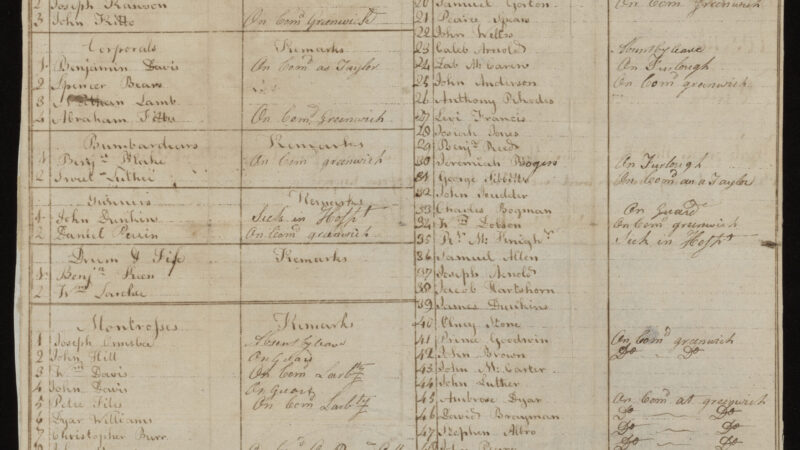 2 Joseph Rawson
3 John Kitts On Comd Greenwich
Corporals Remarks
1 Benjamin Davis On Comd as Taylor
2 Spencer Bears
3 Lamb
4 Abraham On Comd Greenwich
Bumbardears Remarks
1 Benjn Blake On Comd greenwich
2 Luther
Gunners Remarks
1 John Dunkins Sick in Hospt
2 Daniel Perrin On Comd greenwich
Drum & Fife Remarks
1 Benjn
2 Wm
Montrosses Remarks
1 Joseph Ormsbe Absent by leave
2 John Hill On Guard
3 Wm Davis On Comd
4 John Davis On Guard
5 Files On Comd
6 Dyar Williams
7 Christopher Burr
20 Samuel Gorton On Comd Greenwich
21 Pearce Spears
22 John Wilts
23 Caleb Arnold Absent by leave
24 On Furlough
25 John Anderson On Comd greenwich
26 Anthony Rhodes
27 Levi Francis
28 Josiah Jones
29 Benjn Reed
30 Jeremiah Rogers On Furlough
31 George On Comd as a Taylor
32 John Scudder
33 Charles Bogman On Guard
34 Wm Dobson On Comd greenwich
35 Sick in Hospt
36 Samuel Allen
37 Joseph Arnold
38 Jacob Hartshorn
39 James Dunkins
40 Stone
41 Prince Goodwin On Comd greenwich
42 John Brown Do Do
43 John McCarter
44 John Luther
45 Ambrose Dyar On Comd at greenwich
46 David Brayman Do Do
47 Stephen Albro Do Do
Do Do